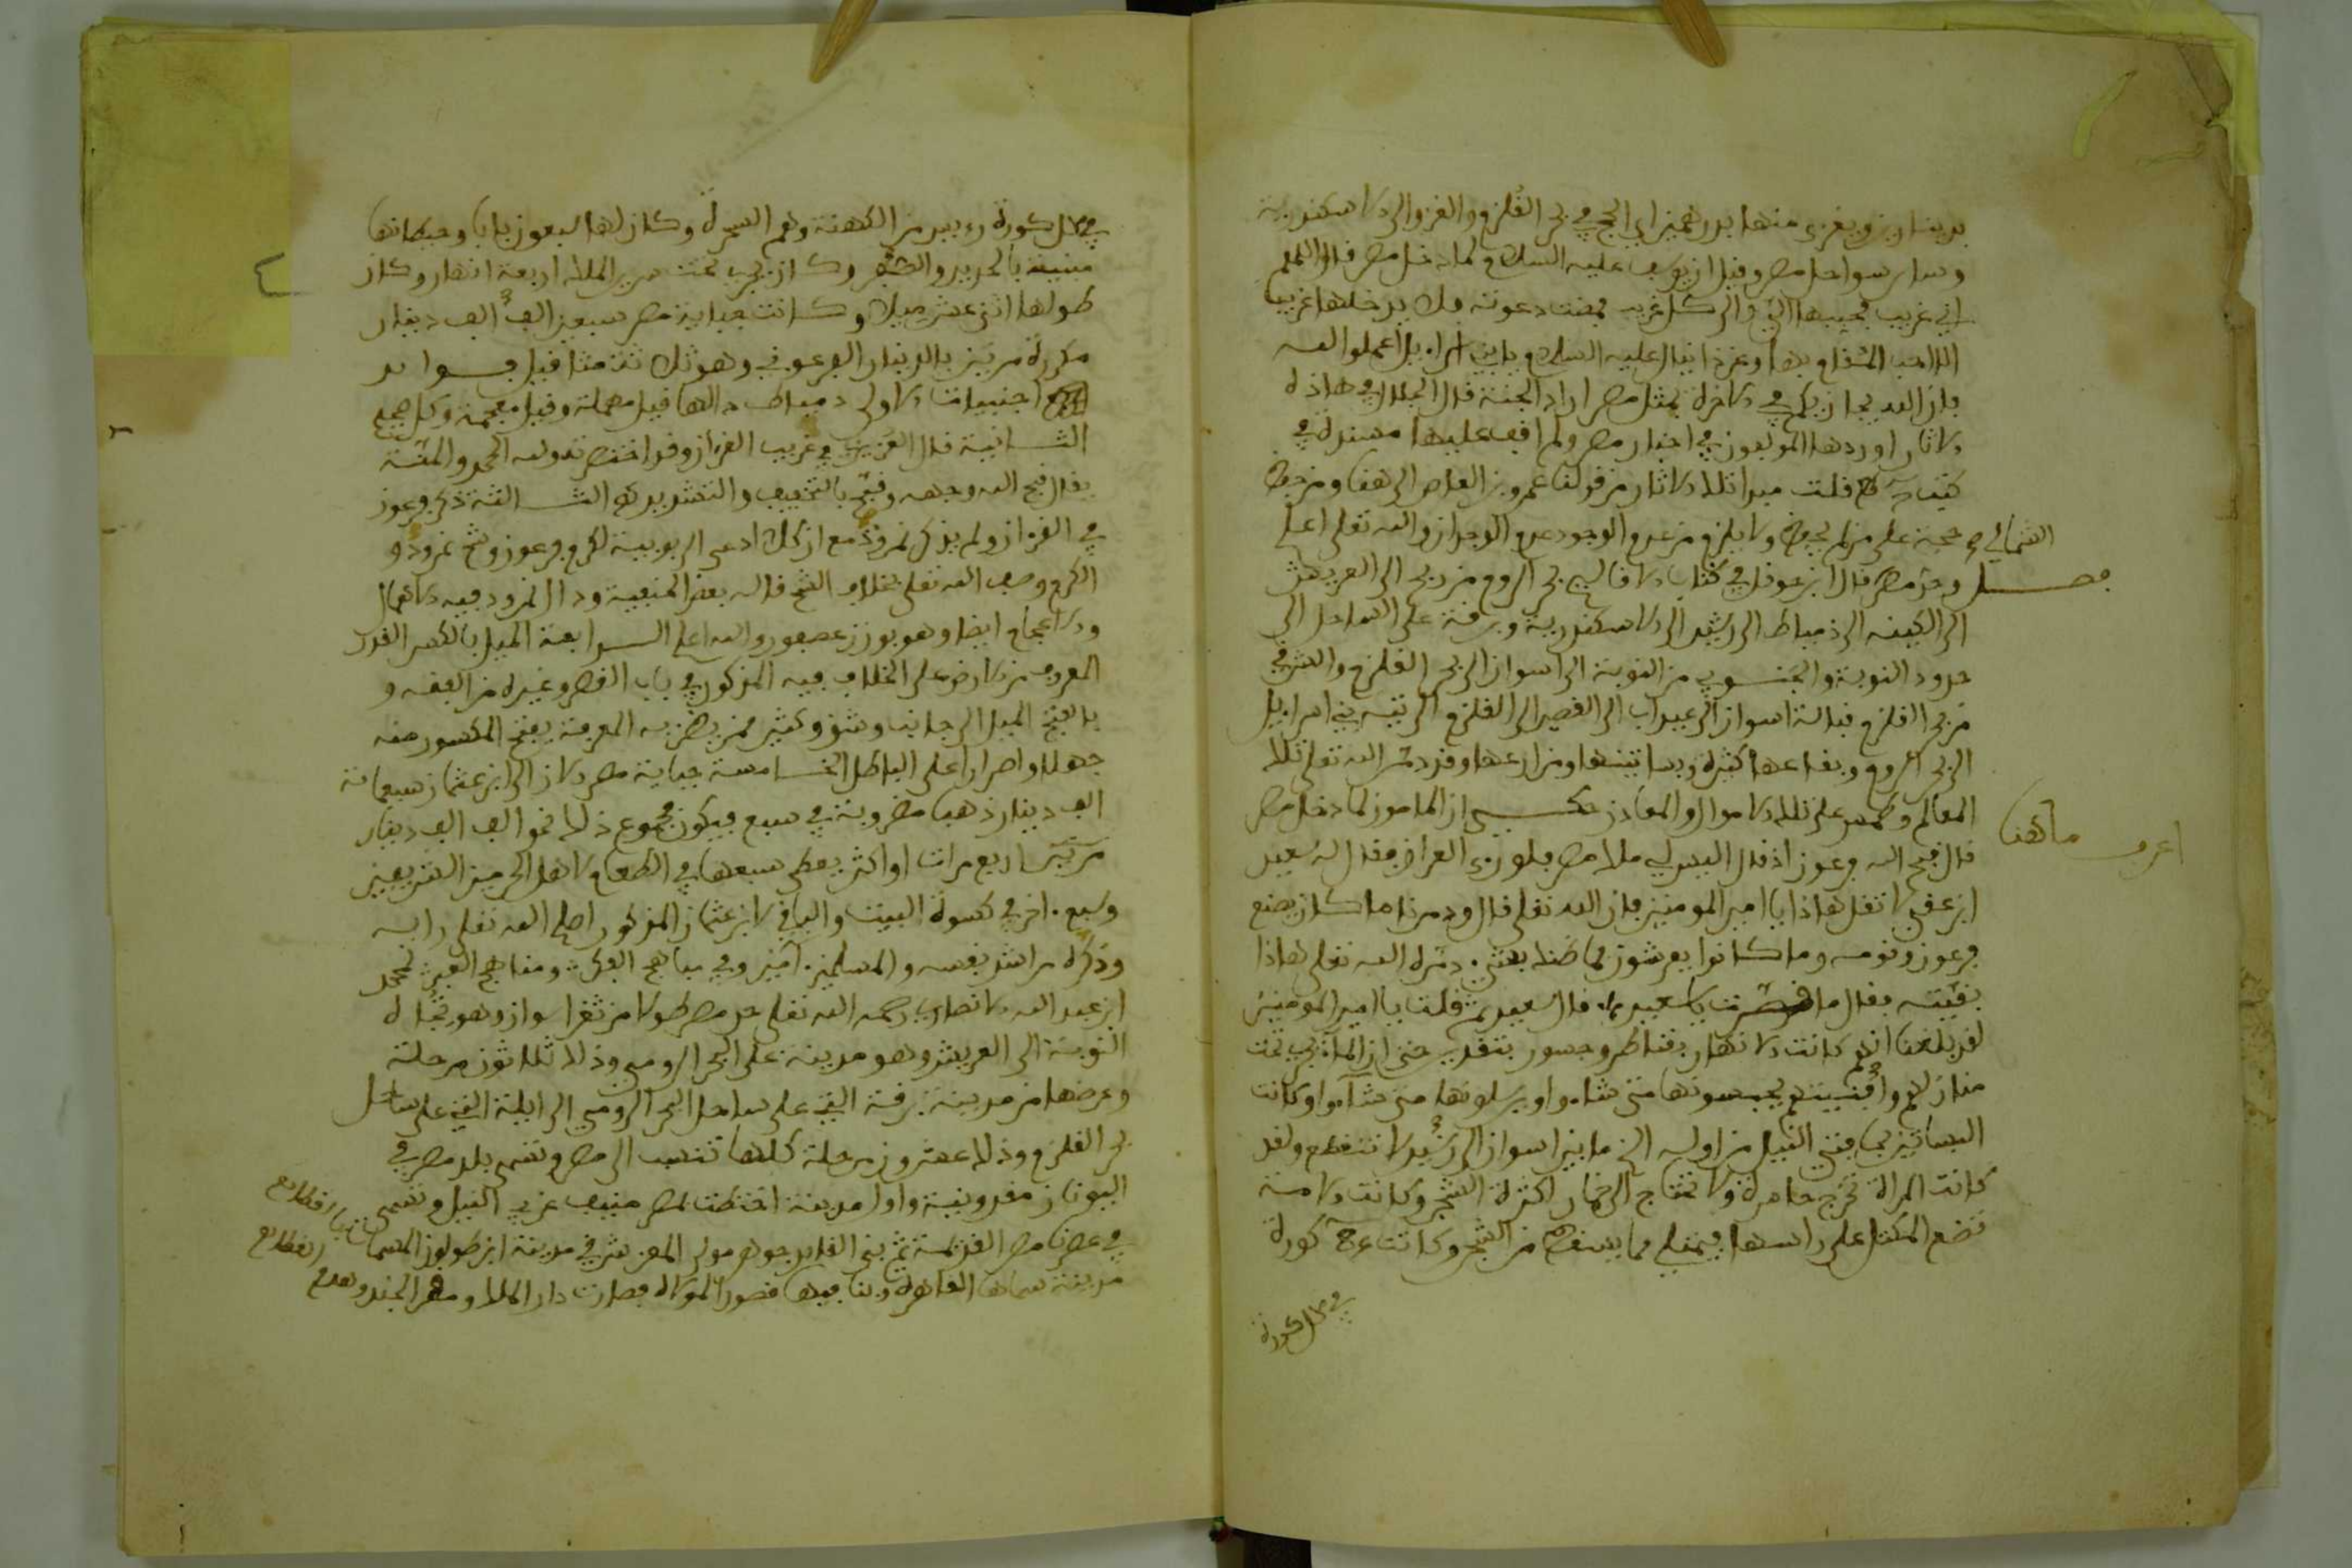 بدينارين ويغزى منها بدرهمين اي الحج في بحر القلزم والغزو الى الاسكندرية
وسائر سواحل مصر وقيل ان يوسف عليه السلام لما دخل مصر قال اللهم
اني غريب فحببها الي والى كل غريب فمضت دعوته فلا يدخلها غريب
الا احب المقام بها وعن دانيال عليه السلام يا بني اسراءيل اعملوا لله
فان الله يجازيكم في الاخرة بمثل مصر اراد الجنة قال الجلال في هاذه
الاثار اوردها المولفون في اخبار مصر ولم اقف عليها مسندة في
كتب قلت مبدا تلك الاثار من قولنا عمرو بن العاص الى هنا ومن حفظ
حجة على من لم يحفظ ولا يلزم من عدم الوجود عدم الوجدان والله تعلى اعلم
الشمالي
فصل وحد مصر قال ابن حوقل في كتاب الاقاليم بحر الروم من بحر الى العريش
الى دمياط الى رشيد الى الاسكندرية وبرقة على الساحل الى
حدود النوبة والجنوبي من النوبة الى اسوان الى بحر القلزم والشرقي
من بحر القلزم قبالة اسوان الى عيذاب الى القصير الى القلزم الى تيه بني اسراءيل
الى بحر الروم وبقاعها كثيرة وبساتينها ومزارعها وقد دمر الله تعلى تلك
المعالم وطمس على تلك الاموال والمعادن حكي ان المامون لما دخل مصر
اعرف ما هنا
قال قبح الله فرعون اذ قال اليس لي ملك مصر فلو رءى العراق فقال له سعيد
ابن عفير لا تقل هاذا يا امير المومنين فان الله تعلى قال ودمرنا ما كان يصنع
فرعون وقومه وما كانوا يعرشون فما ظنك بشيء دمره الله تعلى هاذا
بقيته فقال ما قصرت يا سعيد قال سعيد ثم قلت يا امير المومنين
لقد بلغنا انهم كانت الانهار بقناطر وجسور بتقدير حتى ان الماء يجري تحت
منازلهم وافنيتهم يحبسونها متى شاءوا ويرسلونها متى شاءوا وكانت
البساتين بحافتي النيل من اوله الى اخره ما بين اسوان الى رشيد لا تنقطع ولقد
كانت المراة تخرج حاسرة ولا تحتاج الى خمار لكثرة الشجر وكانت الامة
تضع المكتل على راسها فيمتلي مما يسقط من الشجر وكانت كورة
في كل كورة
في كل كورة رءيس من الكهنة وهم السحرة وكان لها اربعون بابا وحيطانها
مبنية بالحديد والصفر وكان يجري تحت سرير الملك اربعة انهار وكان
طولها اثني عشر ميلا وكانت جباية مصر سبعين الف الف دينار
مكررة مرتين بالدينار الفرعوني وهو ثلاث مثاقيل فوائد
اجنبيات الاولى دمياط دالها قيل مهملة وقيل معجمة وكل صحيح
الثانية قال العزيزي في غريب القرءان وقد اختصرته ولله الحمد والمنة
يقال قبح الله وجهه وقبح بالتخفيف والتشديد الثالثة ذكر فرعون
في القرءان ولم يذكر نمروذ مع ان كلا ادعى الربوبية لكرم فرعون وشح نمروذ و
الكرم وصف الله تعلى بخلاف الشح قاله بعض الحنفية ودال نمرود فيه الاهمال
والاعجام ايضا وهو بوزن عصفور والله اعلم الرابعة الميل بالكسر القدر
المعروف من الارض على الخلاف فيه المذكور في باب القصر وغيره من الفقه و
بالفتح الميل الى جانب وشؤ وكثير ممن يظن به المعرفة يفتح المكسور منه
جهلا واصرارا على الباطل الخامسة جباية مصر الان الى ابن عثمان سبعمائة
الف دينار ذهبا مضروبة في سبع فيكون مجموع ذلك نحو الف الف دينار
مرتين اربع مرات او اكثر يعطى سبعها في الطعام لاهل الحرمين الشريفين
وسبع اخر في كسوة البيت والباقي لابن عثمان المذكور اصلح الله تعلى رايه
وذكره مراشد نفسه والمسلمين امين وفي مباهج الفكر ومناهج العبر لمحمد
ابن عبد الله الانصاري رحمه الله تعلى حد مصر طولا من ثغر اسوان وهو تجاه
النوبة الى العريش وهو مدينة على البحر الرومي وذلك ثلاثون مرحلة
وعرضها من مدينة برقة التي على ساحل البحر الرومي الى ايلة التي على ساحل
بحر القلزم وذلك عشرون مرحلة كلها تنسب الى مصر وتسمى بلد مصر في
اليونان مقدونية واول مدينة اختطت بمصر منيف غربي النيل وتسمى
في عصرنا مصر القديمة ثم بنى القايد جوهر مولى المعز شرقي مدينة ابن طولون المسماة بالقطائع
القطائع
مدينة سماها القاهرة وبنا فيها قصورا لمولاه فصارت دار الملك ومقر الجند وهدم